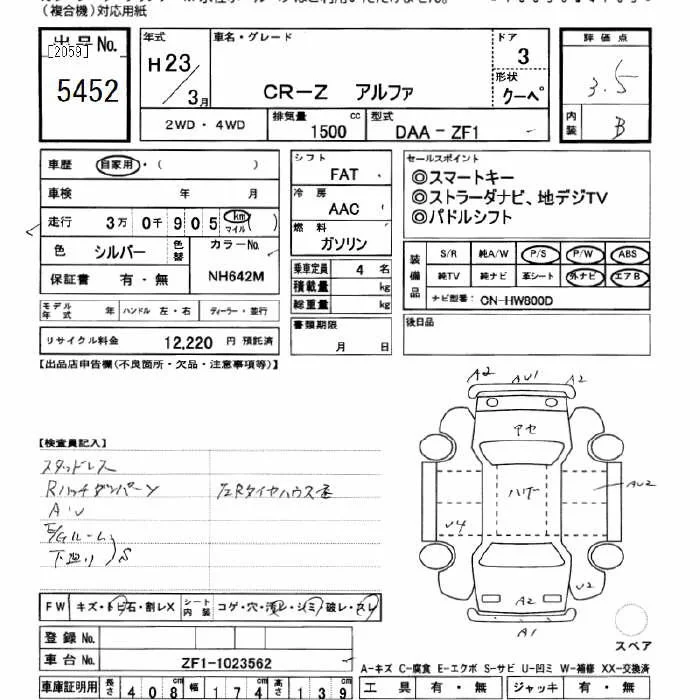 （複合機）対応用紙
出品No.
［2059］
5452
年式
H23/3月
車名・グレード
CR-Z アルファ
ドア
3
形状
クーペ
評価点
3.5
内装
B
2WD・4WD
排気量 1500 cc
型式 DAA-ZF1
車歴 自家用・（ ）
車検 年 月
走行 3万 0千 9 0 5 km（マイル）
色 シルバー
色替
カラーNo.
NH642M
保証書 有・無
モデル年式 年 ハンドル 左・右 ディーラー・並行
リサイクル料金 12,220 円 預託済
シフト
FAT
冷房
AAC
燃料
ガソリン
乗車定員 4 名
積載量 kg
総重量 kg
書類期限
月 日
セールスポイント
◎スマートキー
◎ストラーダナビ、地デジTV
◎パドルシフト
装備品
S/R 純A/W P/S P/W ABS
純TV 純ナビ 革シート 外ナビ エアB
ナビ型番： CN-HW800D
後日品
【出品店申告欄(不良箇所・欠品・注意事項等)】
【検査員記入】
スタッドレス
Rハッチダンパーン
A'U
E/Gルーム
下廻り S
A2 AU1 A2
アセ
ハゲ
AU2
U4
U2
A2
A1
スペア
FW キズ・トビ石・割レX
シート内装 コゲ・穴・汚レ・シミ・破レ・スレ
登録No.
車台No. ZF1-1023562
車庫証明用 長さ 408cm 幅 174cm 高さ 139cm
A-キズ C-腐食 E-エクボ S-サビ U-凹ミ W-補修 XX-交換済
工具 有・無 ジャッキ 有・無